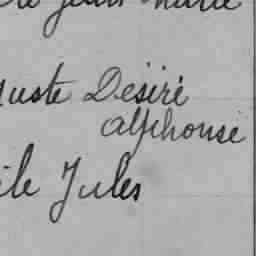 Jean Marie
guste Désiré
alphonse
ile Jules